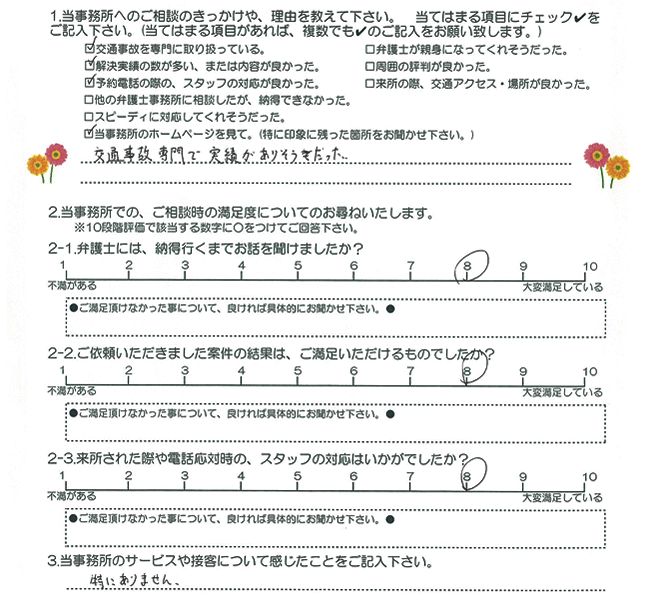 1.当事務所へのご相談のきっかけや、理由を教えて下さい。 当てはまる項目にチェック✔を
ご記入下さい。(当てはまる項目があれば、複数でも✔のご記入をお願い致します。)
☑交通事故を専門に取り扱っている。 □弁護士が親身になってくれそうだった。
☑解決実績の数が多い、または内容が良かった。 □周囲の評判が良かった。
☑予約電話の際の、スタッフの対応が良かった。 □来所の際、交通アクセス・場所が良かった。
□他の弁護士事務所に相談したが、納得できなかった。
□スピーディに対応してくれそうだった。
☑当事務所のホームページを見て。(特に印象に残った箇所をお聞かせ下さい。)
交通事故専門で実績がありそうだった。
2.当事務所での、ご相談時の満足度についてのお尋ねいたします。
※10段階評価で該当する数字に○をつけてご回答下さい。
2-1.弁護士には、納得行くまでお話を聞けましたか?
1 2 3 4 5 6 7 8 9 10
不満がある 大変満足している
●ご満足頂けなかった事について、良ければ具体的にお聞かせ下さい。●
2-2.ご依頼いただきました案件の結果は、ご満足いただけるものでしたか?
1 2 3 4 5 6 7 8 9 10
不満がある 大変満足している
●ご満足頂けなかった事について、良ければ具体的にお聞かせ下さい。●
2-3.来所された際や電話応対時の、スタッフの対応はいかがでしたか?
1 2 3 4 5 6 7 8 9 10
不満がある 大変満足している
●ご満足頂けなかった事について、良ければ具体的にお聞かせ下さい。●
3.当事務所のサービスや接客について感じたことをご記入下さい。
特にありません。